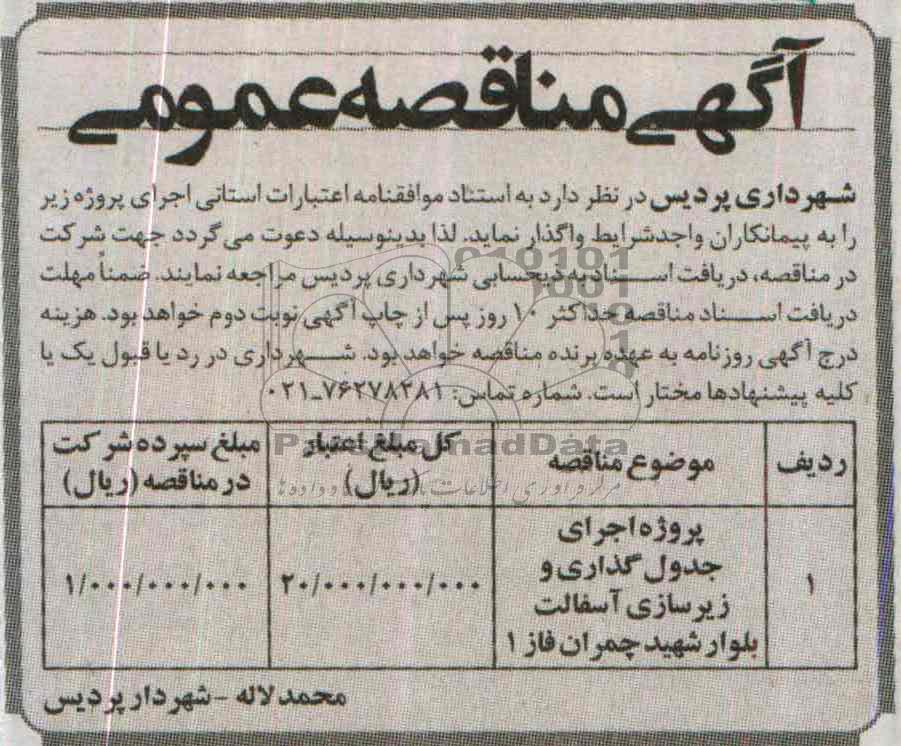 آگهی مناقصه عمومی
شهرداری پردیس در نظر دارد به استناد موافقنامه اعتبارات استانی اجرای پروژه زیر
را به پیمانکاران واجدشرایط واگذار نماید. لذا بدینوسیله دعوت می گردد جهت شرکت
در مناقصه، دریافت اسناد به ذیحسابی شهرداری پردیس مراجعه نمایند. ضمناً مهلت
دریافت اسناد مناقصه حداکثر ۱۰ روز پس از چاپ آگهی نوبت دوم خواهد بود. هزینه
درج آگهی روزنامه به عهده برنده مناقصه خواهد بود. شهرداری در رد یا قبول یک یا
کلیه پیشنهادها مختار است. شماره تماس: ۷۶۲۷۸۲۸۱-۰۲۱
ردیف موضوع مناقصه کل مبلغ اعتبار (ریال) مبلغ سپرده شرکت در مناقصه (ریال)
۱ پروژه اجرای
جدول گذاری و
زیرسازی آسفالت
بلوار شهید چمران فاز ۱
۲۰/۰۰۰/۰۰۰/۰۰۰ ۱/۰۰۰/۰۰۰/۰۰۰
محمد لاله - شهردار پردیس